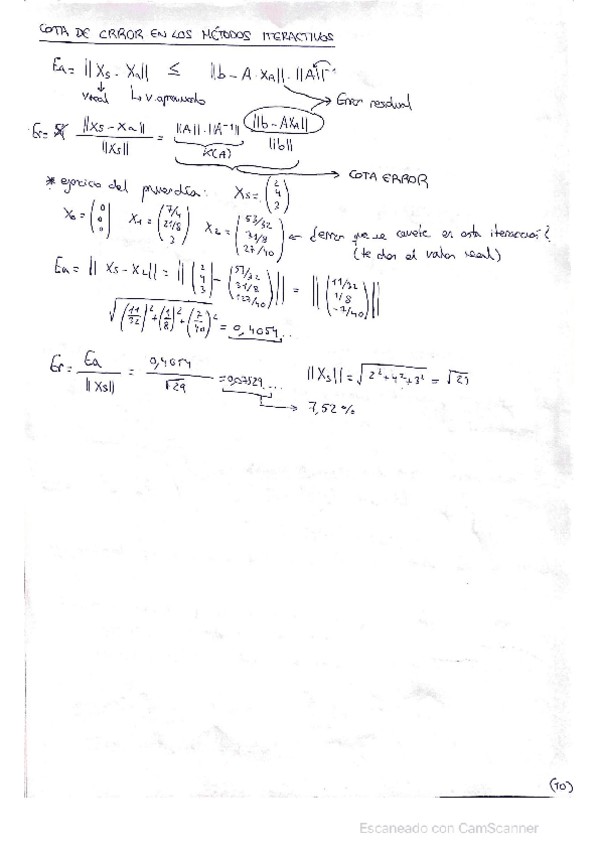 COTA DE ERROR EN LOS MÉTODOS ITERACTIVOS
Ea = ||Xs - Xa|| ≤ ||b - A · Xa|| · ||A⁻¹||
v.real v. aproximado → Error residual
Er = ||Xs - Xa|| / ||Xs|| = ||A|| · ||A⁻¹|| ||b - AXa|| / ||b||
K(A)
→ COTA ERROR
* ejercicio del Xs = (2 4 3)
X0 = (0 0 0) X1 = (7/4 21/8 3) X2 = (53/32 31/8 27/40) ← ¿error que se comete en esta iteracción?
(te dan el valor real)
Ea = ||Xs - X2|| = ||(2 4 3) - (53/32 31/8 127/40)|| = ||(11/32 1/8 -7/40)||
√((11/32)² + (1/8)² + (7/40)²) = 0,4054...
Er = Ea / ||Xs|| = 0,4054 / √29 = 0,07529... ||Xs|| = √(2² + 4² + 3²) = √29
→ 7,52 %
(10)
Escaneado con CamScanner